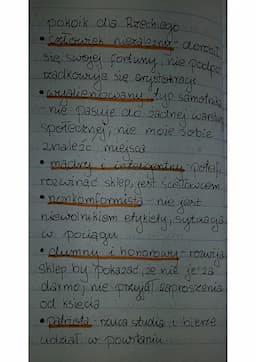 pokoik dla Rzeckiego
• człowiek niezależny - dorobił
się swojej fortuny, nie podpo-
rządkowuje się arystokracji
• wyalienowany typ samotnika
- nie pasuje do żadnej warstwy
społecznej, nie może sobie
znaleźć miejsca
• mądry i inteligentny - potrafi
rozwinąć sklep, jest
• nonkonformista - nie jest
niewolnikiem etykiety, sytuacja
w pociągu
• dumny i honorowy - rozwija
sklep by pokazać, że nie je za
darmo, nie przyjął zaproszenia
od księcia
• patriota - rzuca studia i bierze
udział w powstaniu